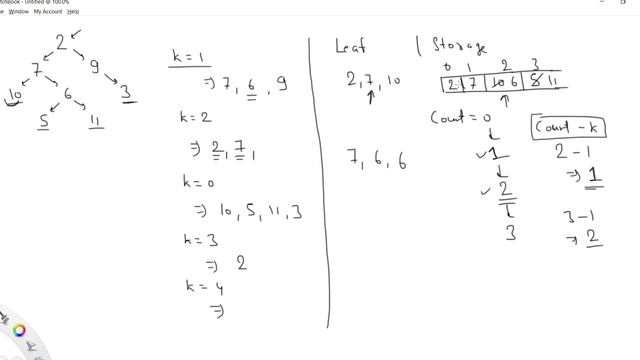 tchBook - Untitled @ 100.0%
e Window My Account Help
2
7 9
10 6 3
5 11
k = 1
⇒ 7, 6, 9
k = 2
⇒ 2, 7,
k = 0
⇒ 10, 5, 11, 3
k = 3
⇒ 2
k = 4
⇒
Leaf
2, 7, 10
7, 6, 6
Storage
0 1 2 3
2 7 10 6 5 11
Count = 0
1
2
3
Count - k
2 - 1
⇒ 1
3 - 1
⇒ 2